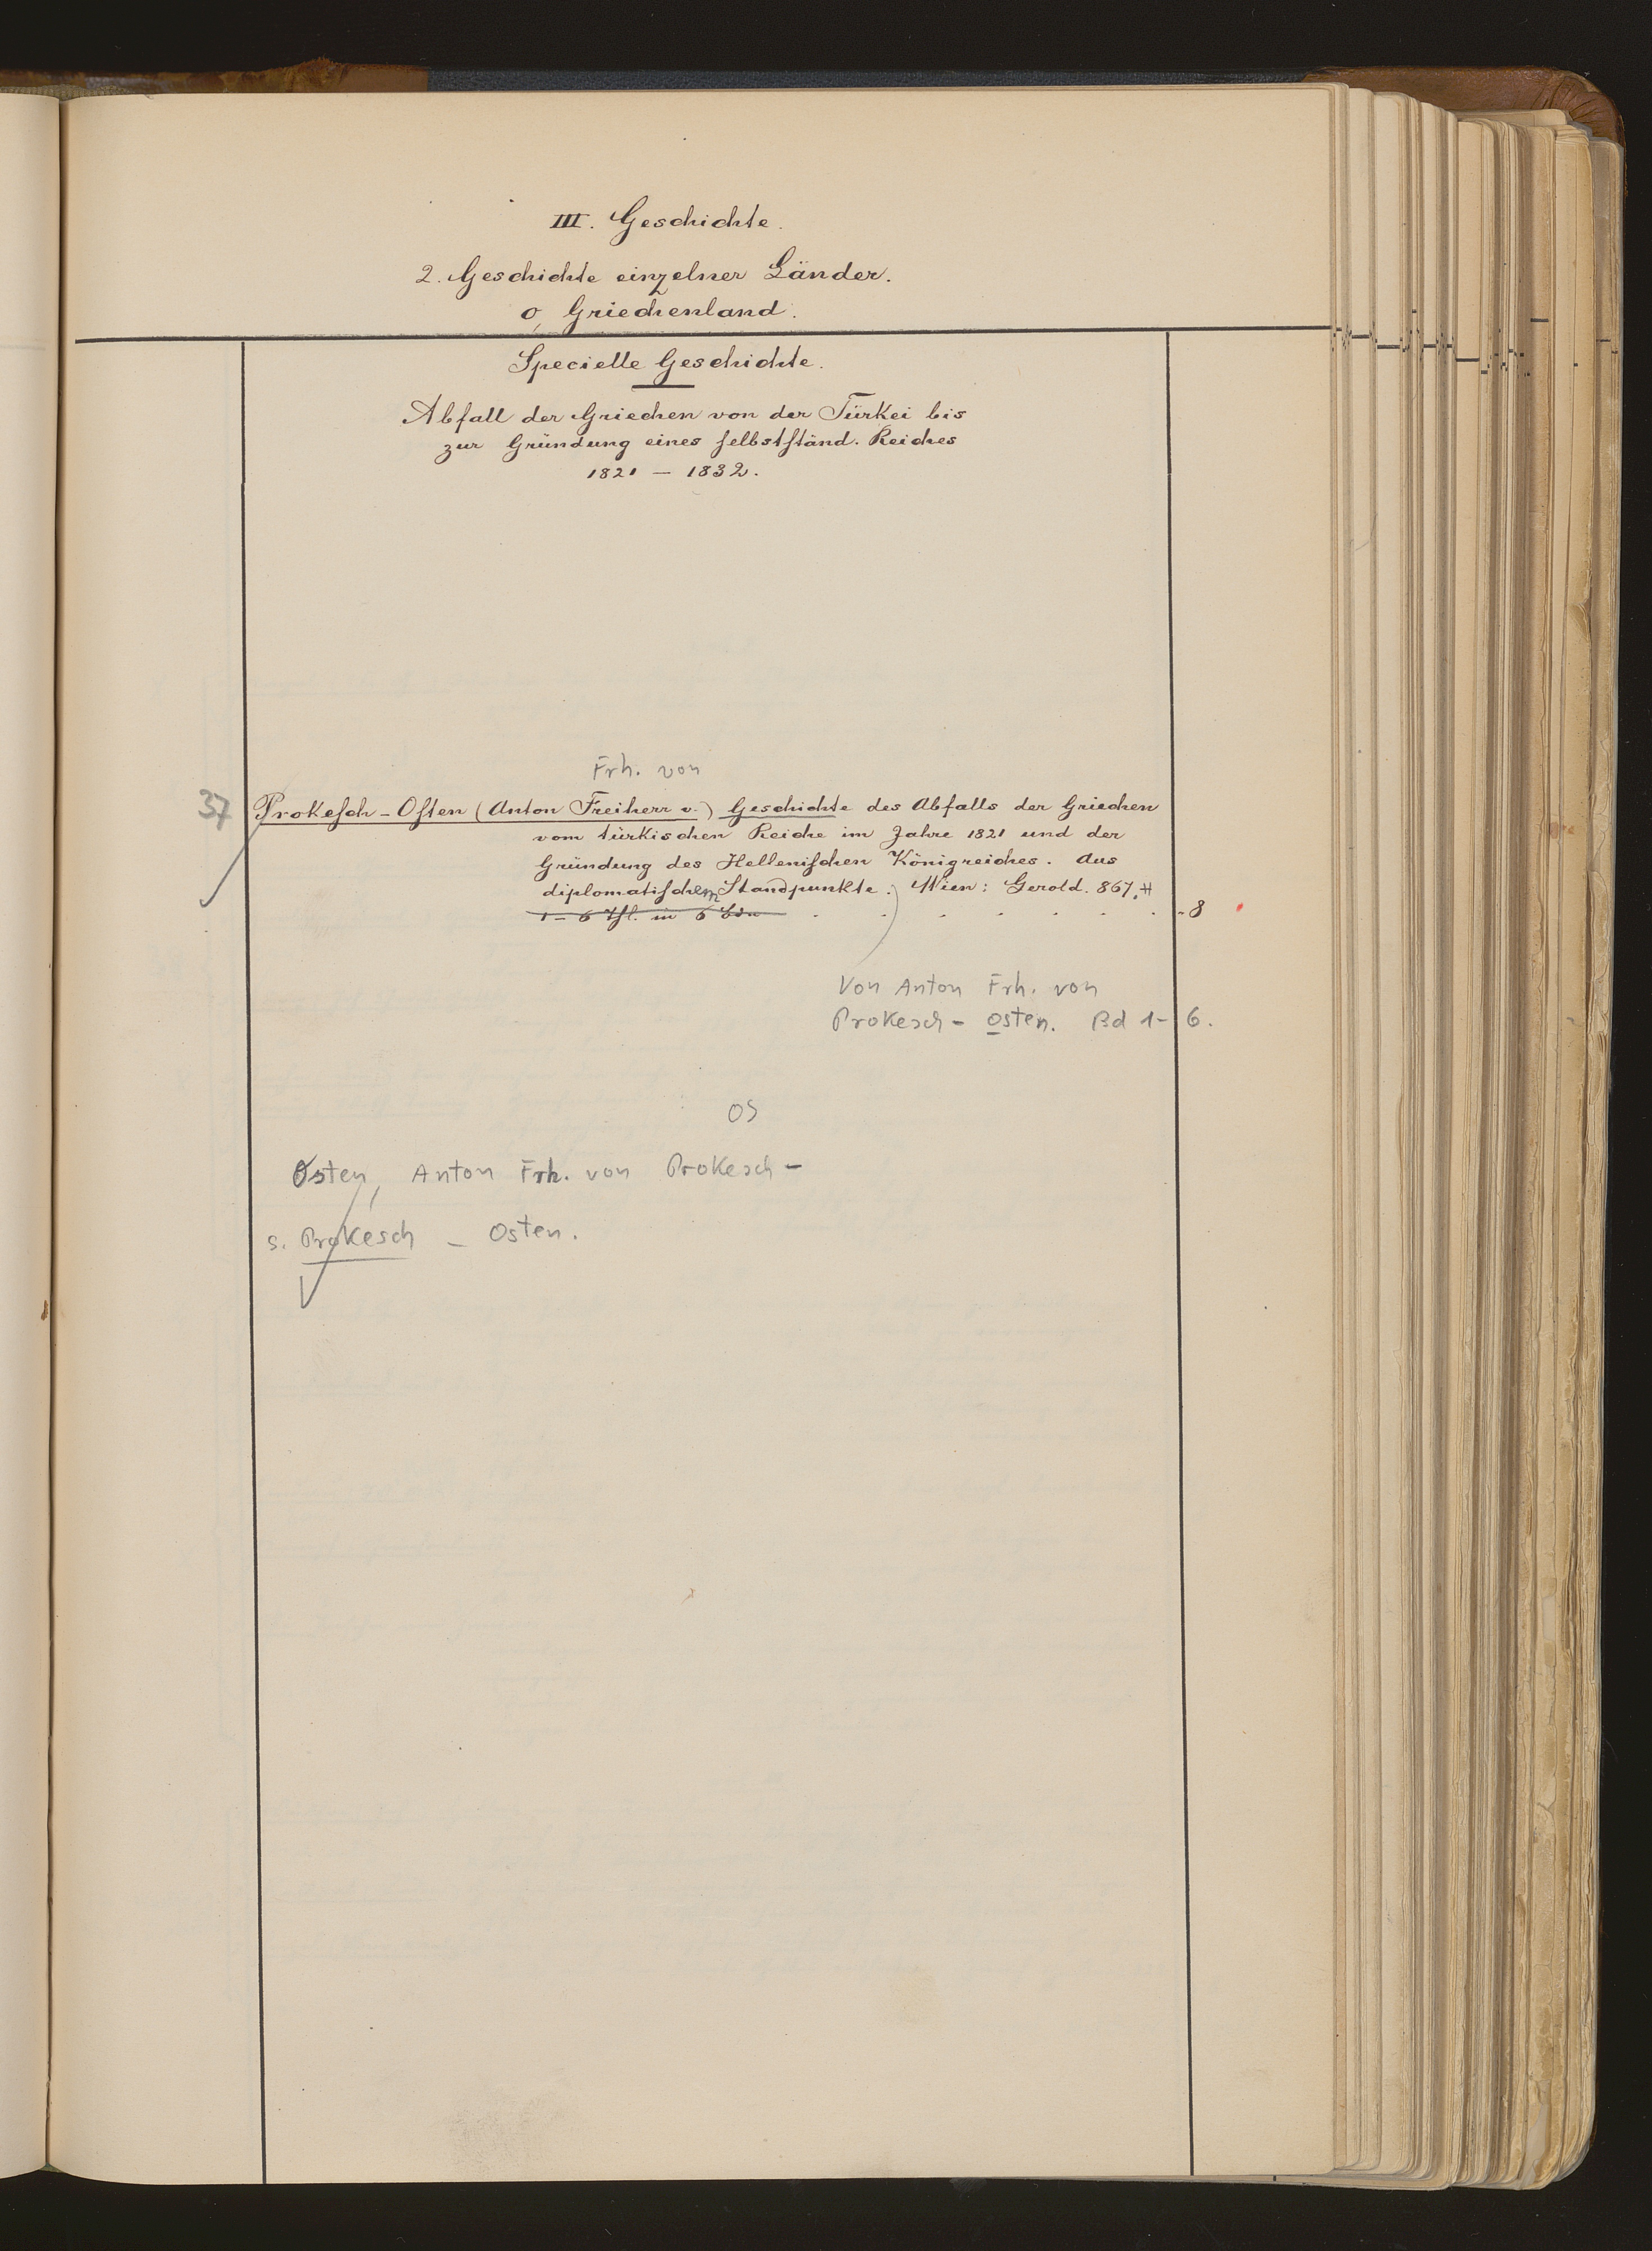 III. Geschichte.
2. Geschichte einzelner Länder.
o, Griechenland.
Specielle Geschichte.
Abfall der Griechen von der Türkei bis
zur Gründung eines selbstständ. Reiches
1821 – 1832.
Frh. von
37 Prokesch-Osten (Anton Freiherr v.) Geschichte des Abfalls der Griechen
vom türkischen Reiche im Jahre 1821 und der
Gründung des Hellenischen Königreiches. Aus
diplomatischem Standpunkte.) Wien: Gerold. 867.
1–6 Thl. in 6 Bdn . . . . . . . 8
Von Anton Frh. von
Prokesch-Osten. Bd 1-6.
OS
Osten, Anton Frh. von Prokesch-
s. Prokesch - Osten.